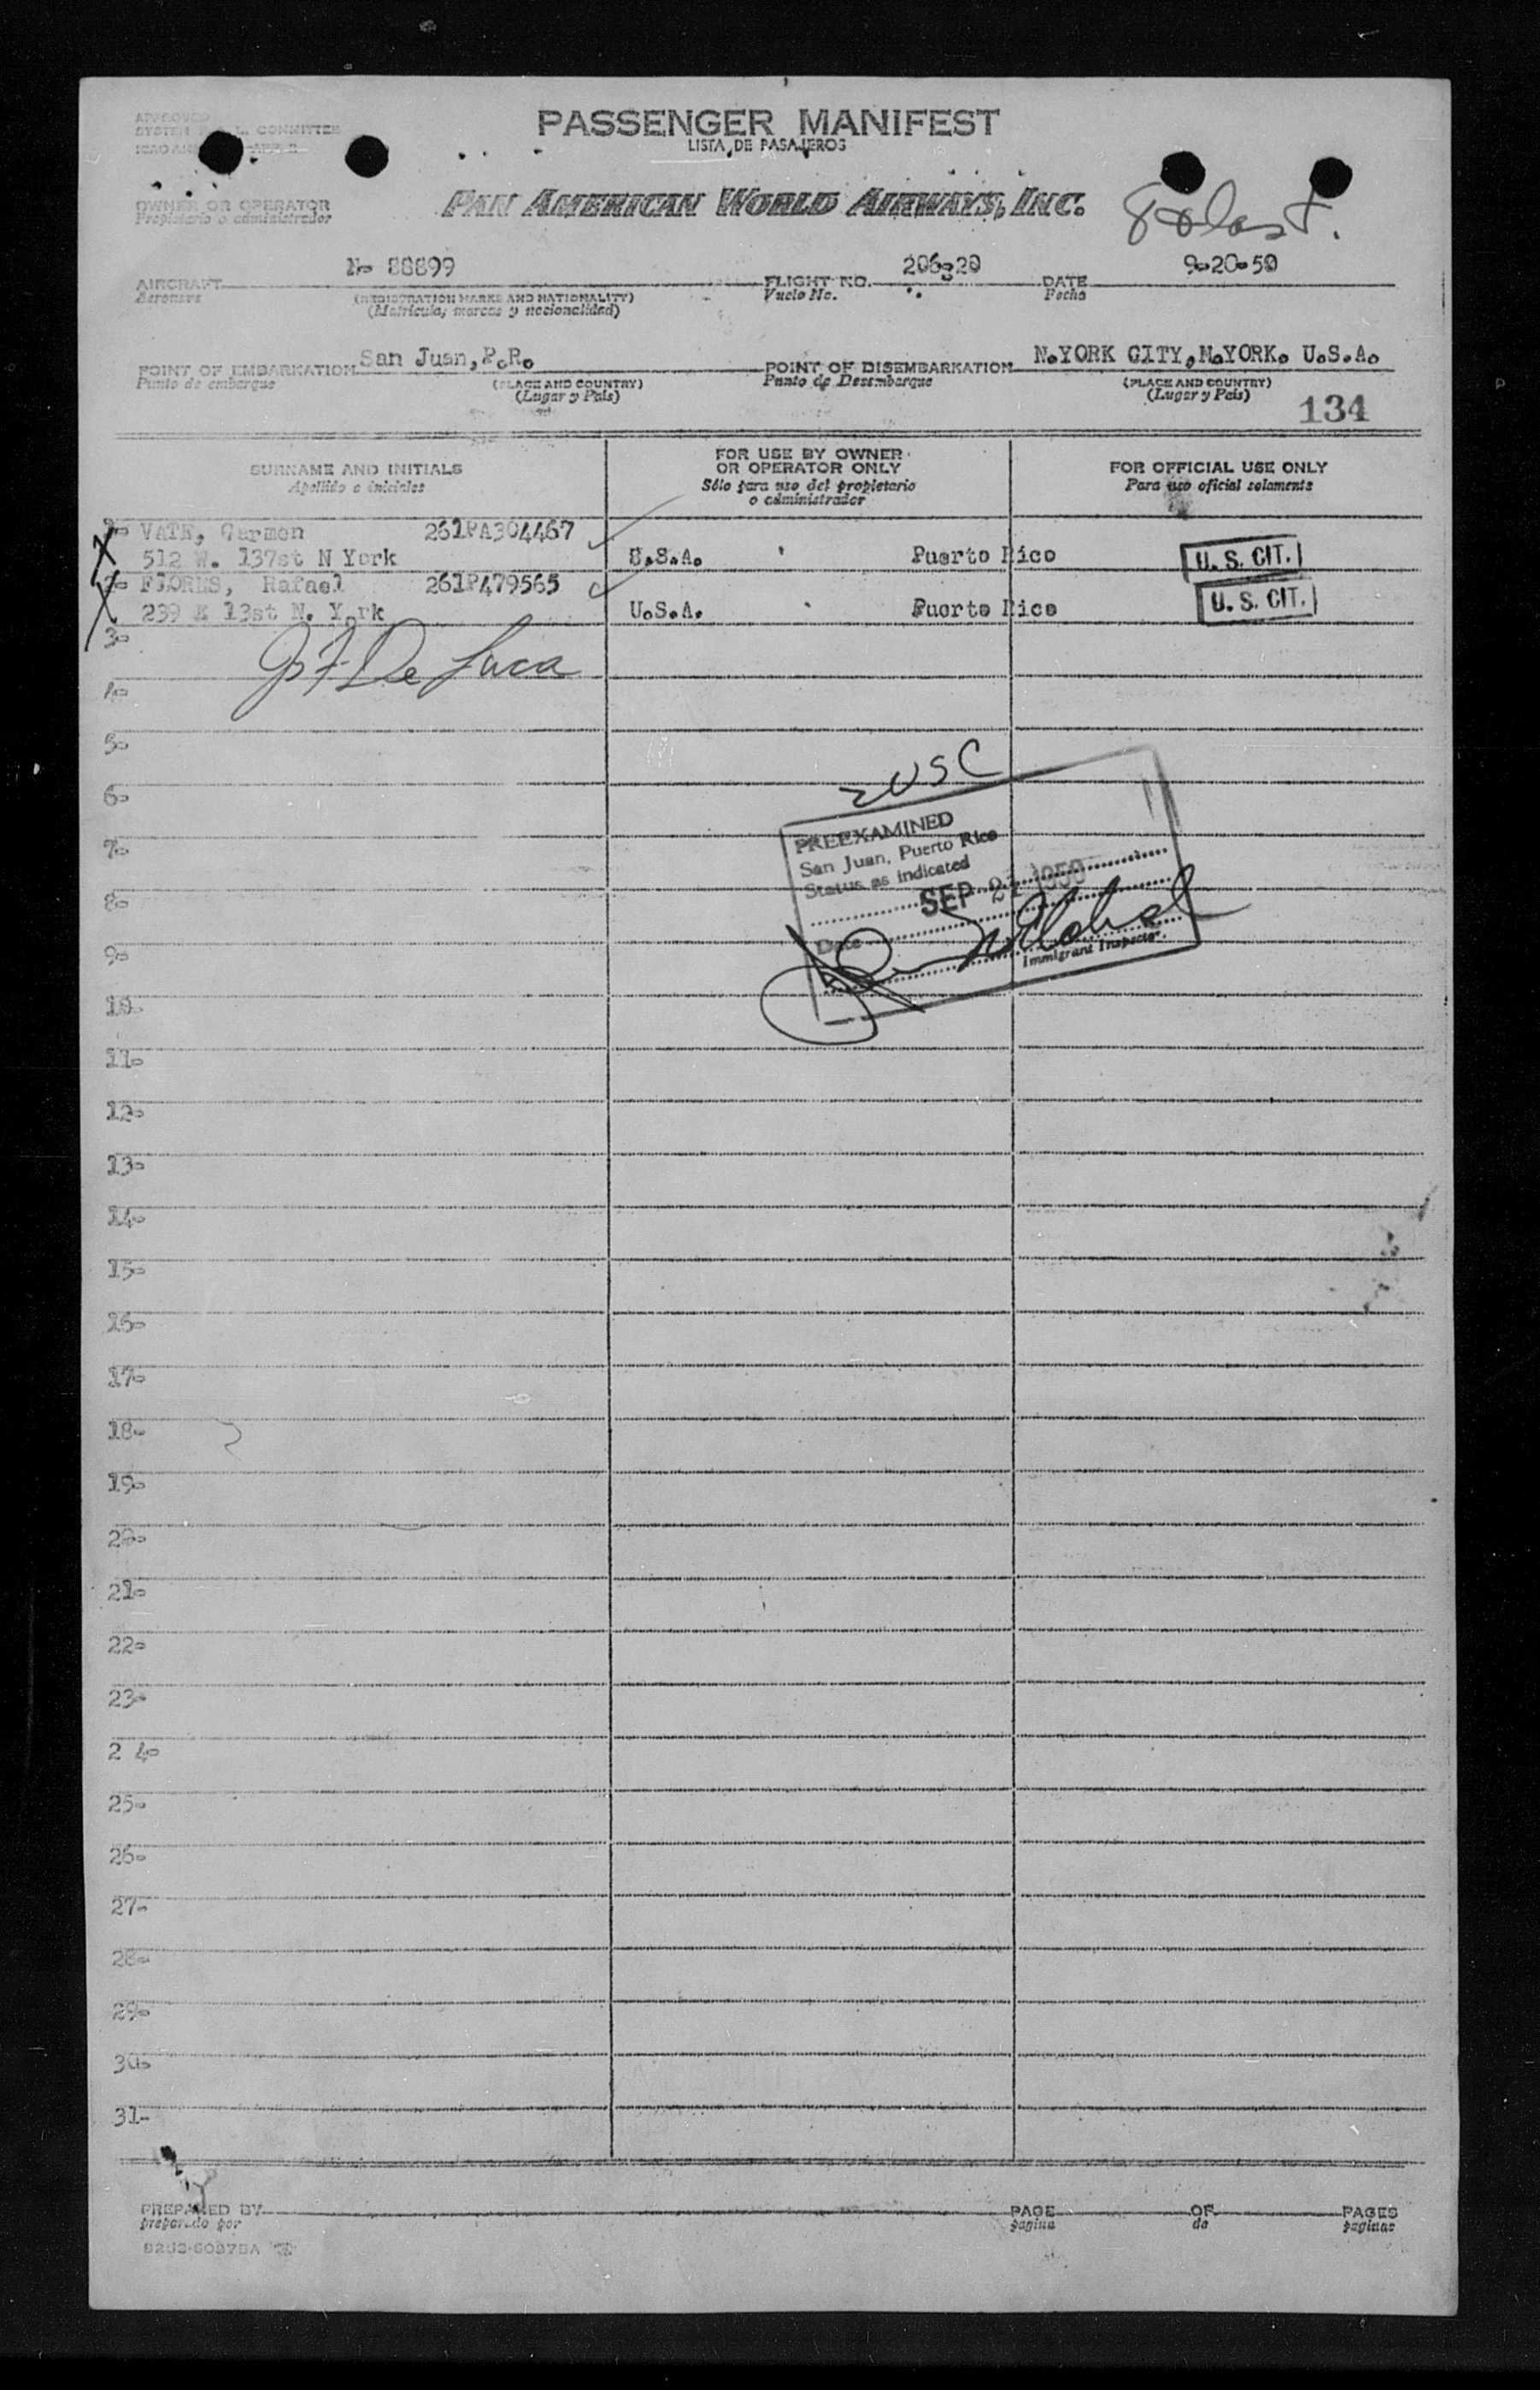 APPROVED
SYSTEM COMMITTEE
PASSENGER MANIFEST
LISTA DE PASAJEROS
OWNER OR OPERATOR
Propietario o administrador
PAN AMERICAN WORLD AIRWAYS, INC.
AIRCRAFT N- 88899 FLIGHT NO. 206-20 DATE 9-20-50
Aeronave (REGISTRATION MARKS AND NATIONALITY) Vuelo No. Fecha
(Matrícula, marcas y nacionalidad)
POINT OF EMBARKATION San Juan, P.R. POINT OF DISEMBARKATION N.YORK CITY, N.YORK. U.S.A.
Punto de embarque (PLACE AND COUNTRY) Punto de Desembarque (PLACE AND COUNTRY)
(Lugar y País) (Lugar y País)
134
SURNAME AND INITIALS
Apellido o iniciales
FOR USE BY OWNER
OR OPERATOR ONLY
Sólo para uso del propietario
o administrador
FOR OFFICIAL USE ONLY
Para uso oficial solamente
VATE, Carmen 261PA304467
512 W. 137st N York U.S.A. Puerto Rico U. S. CIT.
2- FLORES, Rafael 261P479565
239 E 13st N. York U.S.A. Puerto Rico U. S. CIT.
3-
De Luca
4-
5-
2 USC
6-
PREEXAMINED
San Juan, Puerto Rico
Status as indicated
SEP 21 1950
Date
Immigrant Inspector.
7-
8-
9-
10-
11-
12-
13-
14-
15-
16-
17-
18-
19-
20-
21-
22-
23-
2 4-
25-
26-
27-
28-
29-
30-
31-
PREPARED BY PAGE OF PAGES
preparado por pagina de paginas